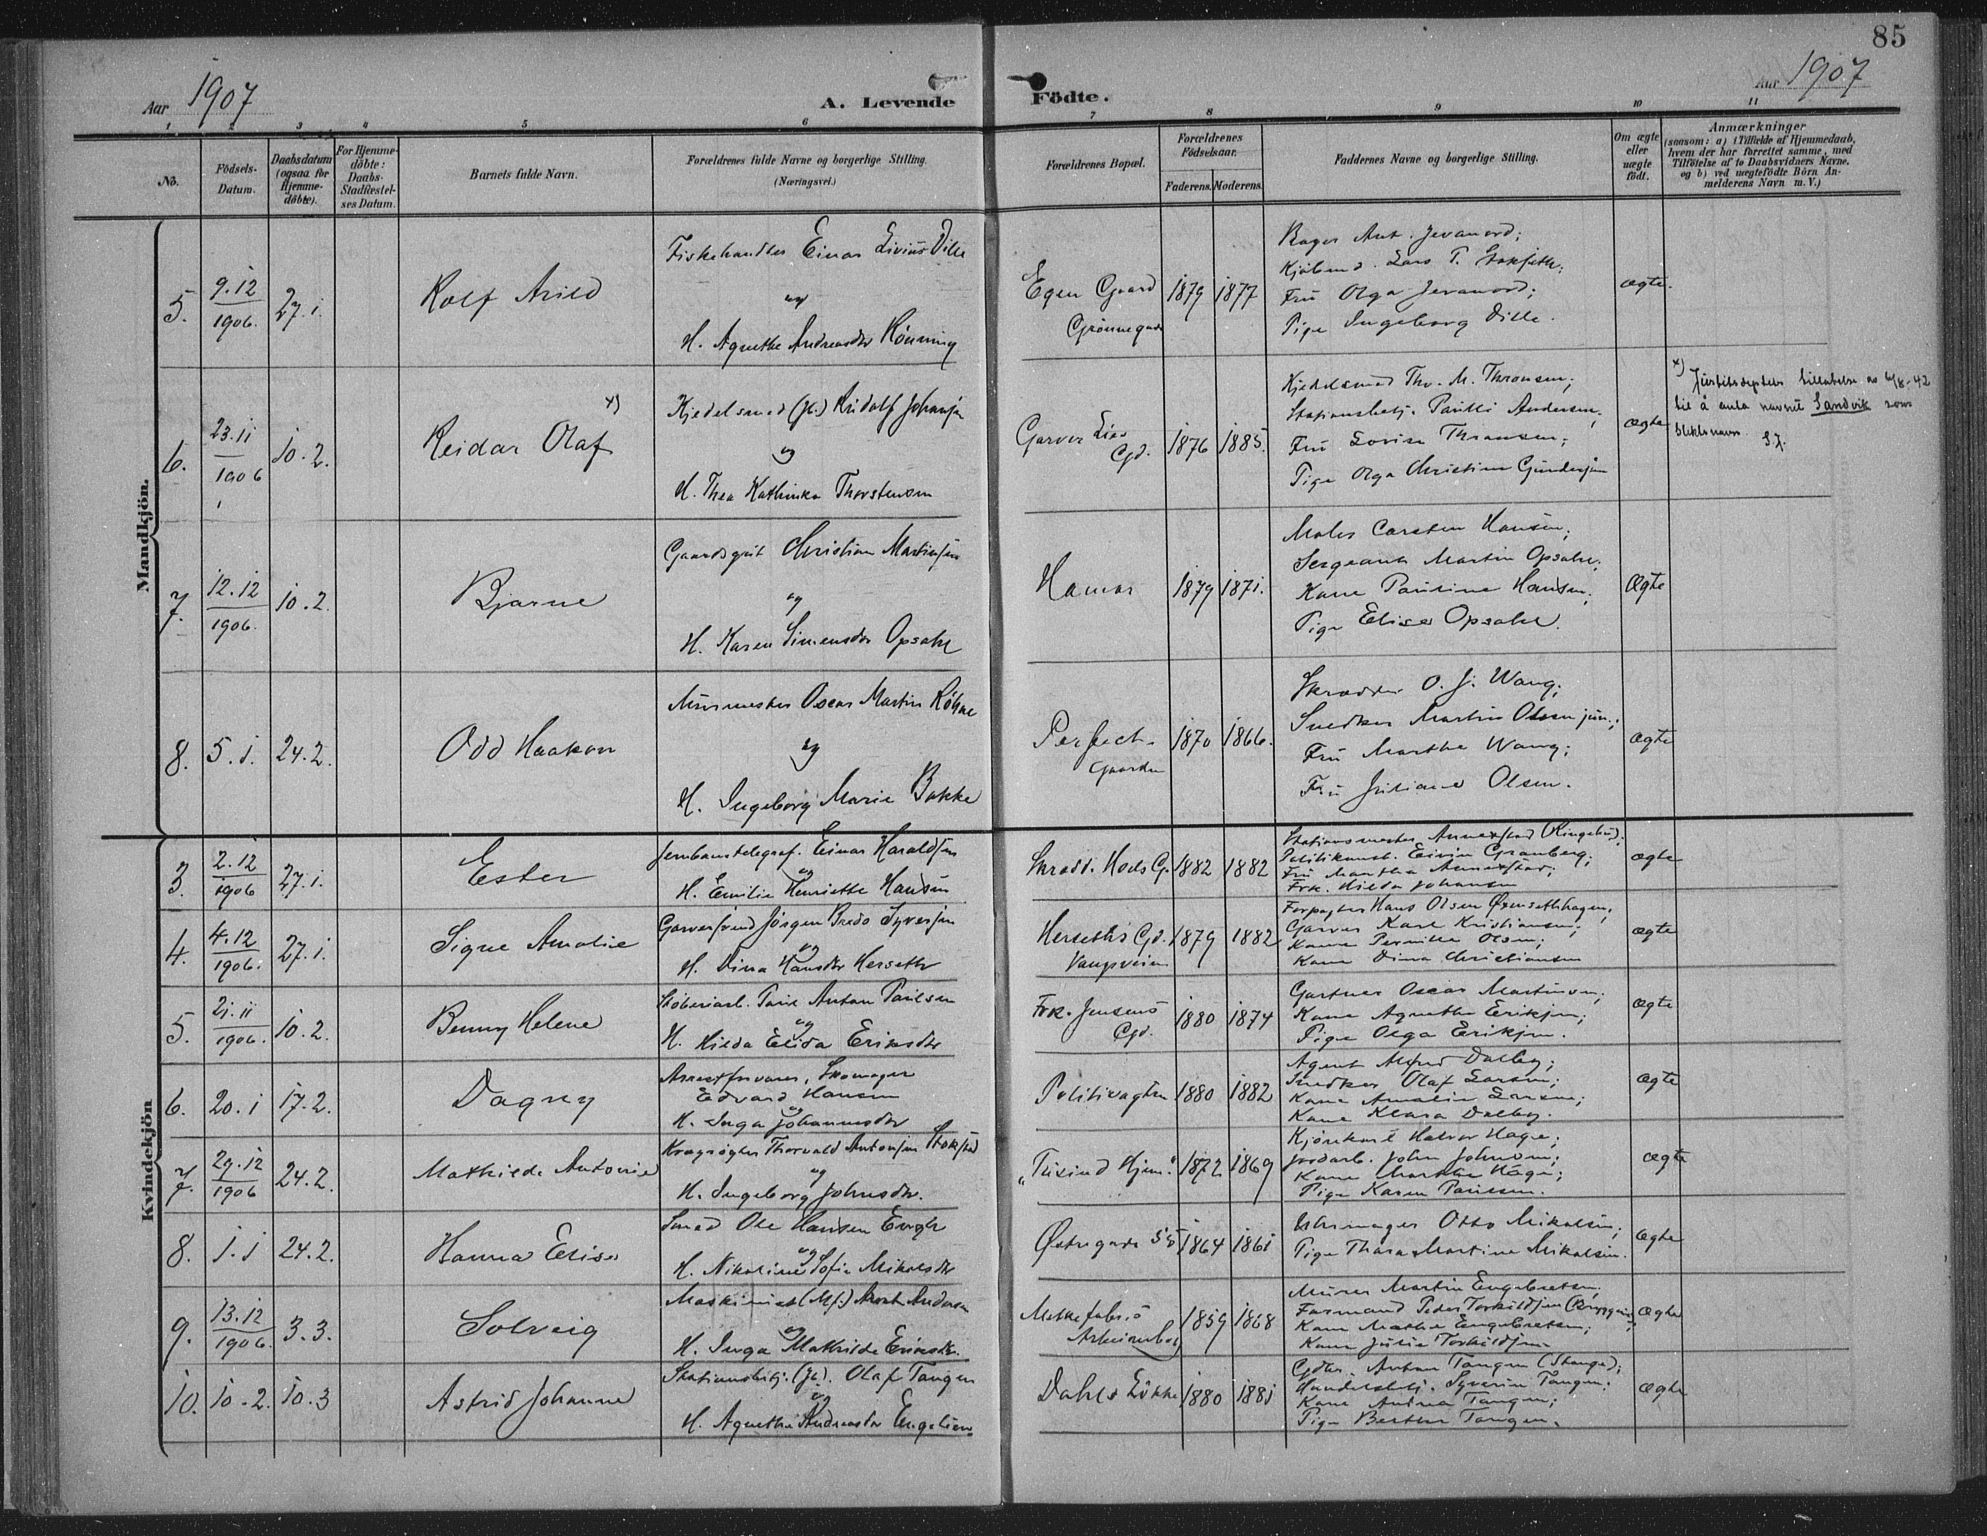 85
Aar 1907
A. Levende Födte.
Aar 1907
1 2 3 4 5 6 7 8 9 10 11
No.
Födsels-Datum.
Daabsdatum (ogsaa for Hjemme-döbte).
For Hjemme-döbte: Daabs-Stadfæstel-ses Datum.
Barnets fulde Navn.
Forældrenes fulde Navne og borgerlige Stilling.
(Næringsvei.)
Forældrenes Bopæl.
Forældrenes Födselsaar.
Faderens. Moderens.
Faddernes Navne og borgerlige Stilling.
Om ægte eller uægte födt.
Anmærkninger
(saasom: a) i Tilfælde af Hjemmedaab,
hvem der har forrettet samme, med
Tilföielse af to Daabsvidners Navne,
og b) ved uægtefödte Börn An-
melderens Navn m. V.)
Mandkjön.
5. 9.12 1906. 27.1.
Rolf Arild
Fiskehandler Einar Livius Dille
og
H. Agnethe Andreasdtr Hönning
Egen Gaard
Grönnegade
1879 1877
Bager Ant. Jevanord;
Kjöbmd. Lars P. Stokseth;
Fru Olga Jevanord;
Pige Ingeborg Dille.
ægte.
6. 23.11 1906 10.2.
Reidar Olaf x)
Kjedelsmed (Jb.) Ridolf Johansen
og
H. Thea Kathinka Thorstensen
Garver Lies
Gd.
1876 1885.
Kjedelsmed Thv. M. Thronsen;
Stationsbetj. Paulli Andersen;
Fru Lovise Thronsen;
Pige Olga Christine Gundersen
ægte
x) Justitsdeptets tillatelse av 6/8-42
til å anta navnet Sandvik som
slektsnavn. S.J.
7. 12.12 1906. 10.2.
Bjarne
Gaardsgut Christian Martinsen
og
H. Karen Simensdtr Opsahl
Hamar
1879 1871.
Maler Carsten Hansen;
Sergeant Martin Opsahl;
Kone Pauline Hansen;
Pige Elise Opsahl.
Ægte
8. 5.1. 24.2.
Odd Haakon
Murmester Oscar Martin
og
H. Ingeborg Marie Bakke
Perfect-
Gaarden
1870 1866.
Skrædder O. J. Wang;
Snedker Martin Olsen jun.;
Fru Marthe Wang;
Fru Juliane Olsen.
ægte
Kvindekjön
3. 2.12 1906 27.1.
Ester
Jernbanetelegraf. Einar Haraldsen
og
H. Emilie Henriette Hansen
Skrædd. Hoels G.
1882 1882
Stationsmester Annexstad (Ringebu);
Politikonst. Eivin Granberg;
Fru Martha Annexstad;
Frk. Hilda Johansen
ægte
4. 4.12 1906. 27.1.
Signe Amalie
Garversvend Jörgen Bredo Syversen
og
H. Dina Hansdtr Herseth
Herseths Gd.
Vangsveien
1879 1882
Forpagter Hans Olsen
Garver Karl Kristiansen;
Kone Pernille Olsen;
Kone Dina Christiansen
ægte
5. 21.11 1906. 10.2.
Benny Helene
Stöberiarb. Paul Anton Paulsen
og
H. Hilda Elida Eriksdtr
Frk. Jensens
Gd.
1880 1874
Gartner Oscar Martinsen;
Kone Agnethe Eriksen;
Pige Olga Eriksen.
ægte
6. 20.1 17.2.
Dagny
Arrestforvarer, Skomager
Edvard Hansen
og
H. Inga Johannesdtr
Politivagten
1880 1882
Agent Alfred Dalby;
Snedker Olaf Larsen;
Kone Amalie Larsen;
Kone Klara Dalby.
ægte
7. 29.12 1906 24.2.
Mathilde Antonie
Thorvald Antonsen Stokstad
og
H. Ingeborg Johnsdtr.
„Tusind Hjem“
1872 1869
Kjörekarl Halvor Hage;
Jordarb. John Johnsen;
Kone Marthe Hage;
Pige Karen Paulsen.
ægte
8. 1.1 24.2.
Hanna Elise
Smed Ole Hansen Engh
og
H. Nikoline Sofie Mikalsdtr
Östregade 55
1864 1861
Uhrmager Otto Mikalsen;
Pige Thora Martine Mikalsen.
ægte
9. 13.12 1906. 3.3.
Solveig
Maskinist (Mf.) Anders
og
H. Inga Mathilde Eriksdtr.
Melkefabr.s
Arbeiderbol.
1859 1868
Murer Martin Engebretsen;
Formand Peder Torkildsen
Kone Mathe Engebretsen;
Kone Julie Torkildsen
ægte
10. 10.2. 10.3
Astrid Johanne
Stationsbetj. (Jb). Olaf Tangen
og
H. Agnethe Andreasdtr Engelien
Dahls Lökke
1880 1881
Gdbr. Anton Tangen (Stange);
Handelsbetj. Syverin Tangen;
Kone Andrea Tangen;
Pige Berthe Tangen.
ægte